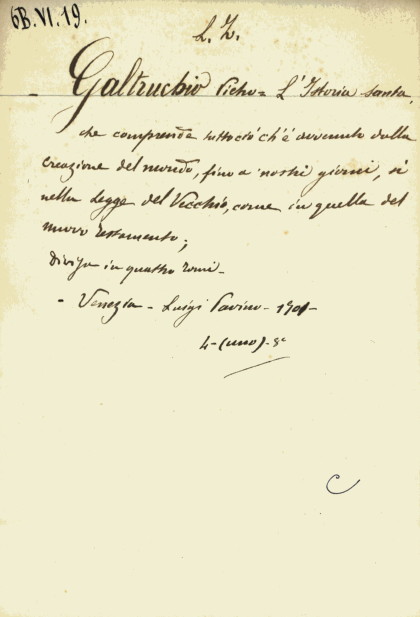 6B.VI.19.
L. Z.
Galtruchio Pietro = L'Istoria santa,
che comprende tuttociò ch'è avvenuto dalla
creazione del mondo, fino a nostri giorni, sì
nella Legge del Vecchio, come in quella del
nuovo Testamento;
divisa in quattro tomi -
- Venezia - Luigi Pavino - 1701 -
4 - (uno) - 8°